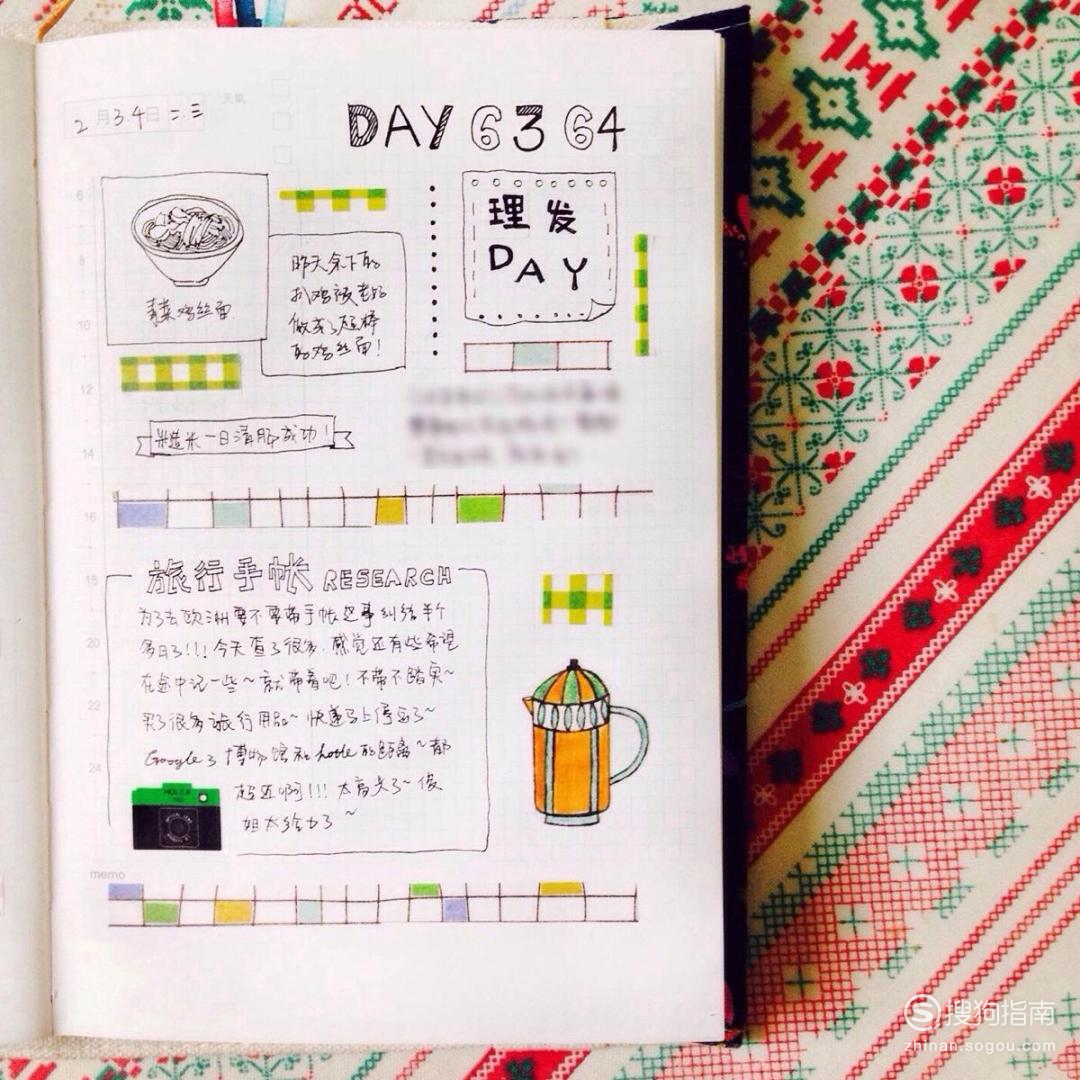 2月3.4日 二.三
天氣
DAY 63 64
6
8
10
12
14
16
18
20
22
24
青菜鸡丝面
昨天余下的
扒鸡被老妈
做成了超棒
的鸡丝面!
理发
DAY
糙米一日清肠成功!
旅行手帐 RESEARCH
为了去欧洲要不要带手帐这事纠结半个
多月了!!!今天查了很多.感觉还有些希望
在途中记一些~就带着吧!不带不踏实~
买了很多旅行用品~快递马上停运了~
Google了博物馆和hotle的距离~都
超近啊!!!太高兴了~傻
姐太给力了~
HOLGA
memo
搜狗指南
zhinan.sogou.com